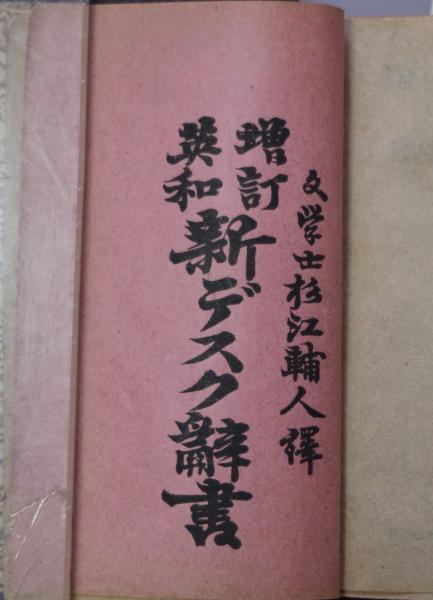 文学士杉江輔人譯
増訂
英和
新デスク辭書